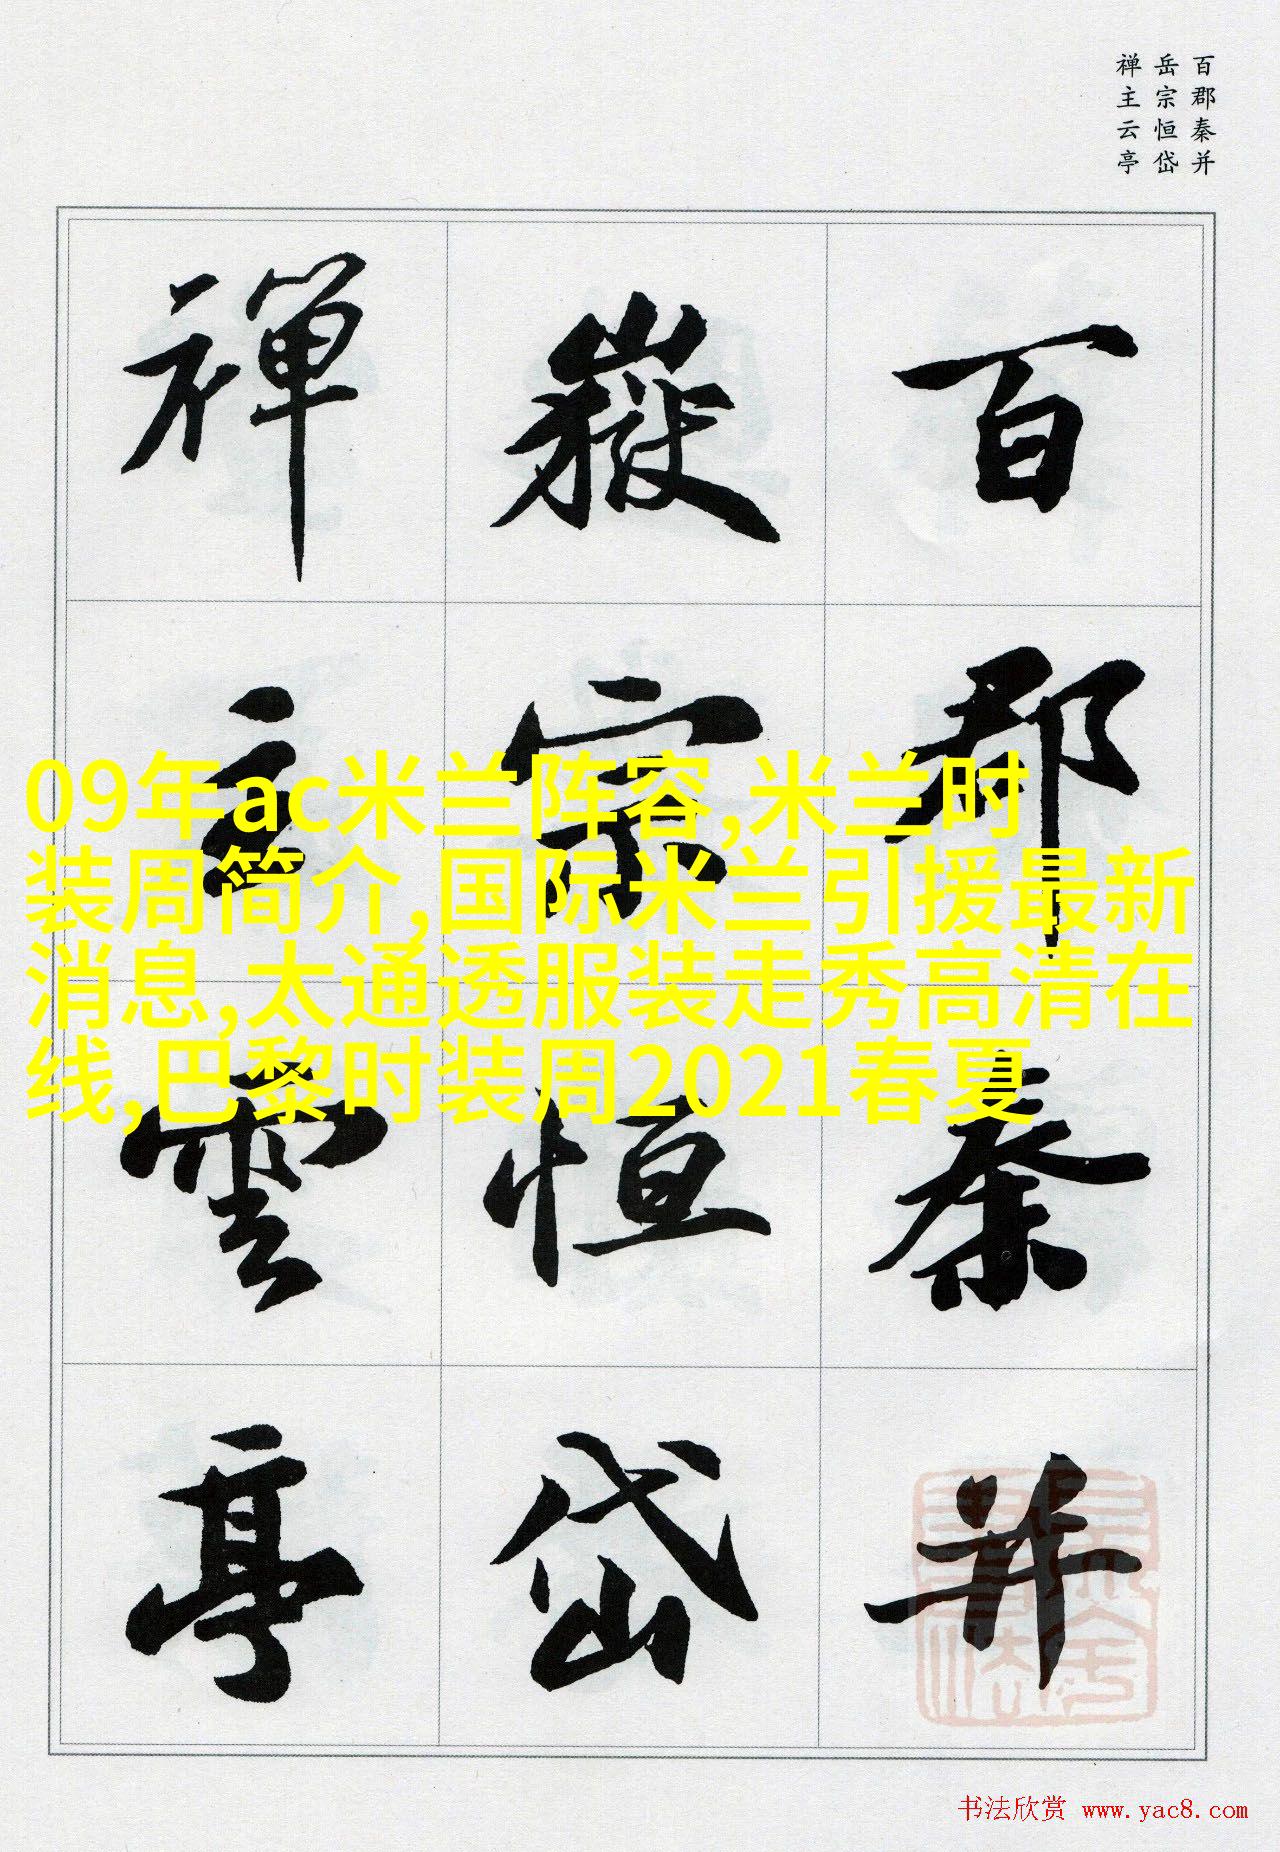 百郡秦并
岳宗恒岱
禅主云亭
百郡秦并
嶽宗恒岱
禅主雲亭
09年ac米兰阵容,米兰时
装周简介,国际米兰引援最新
消息,太通透服装走秀高清在
线,巴黎时装周2021春夏
书法欣赏 www.yac8.com